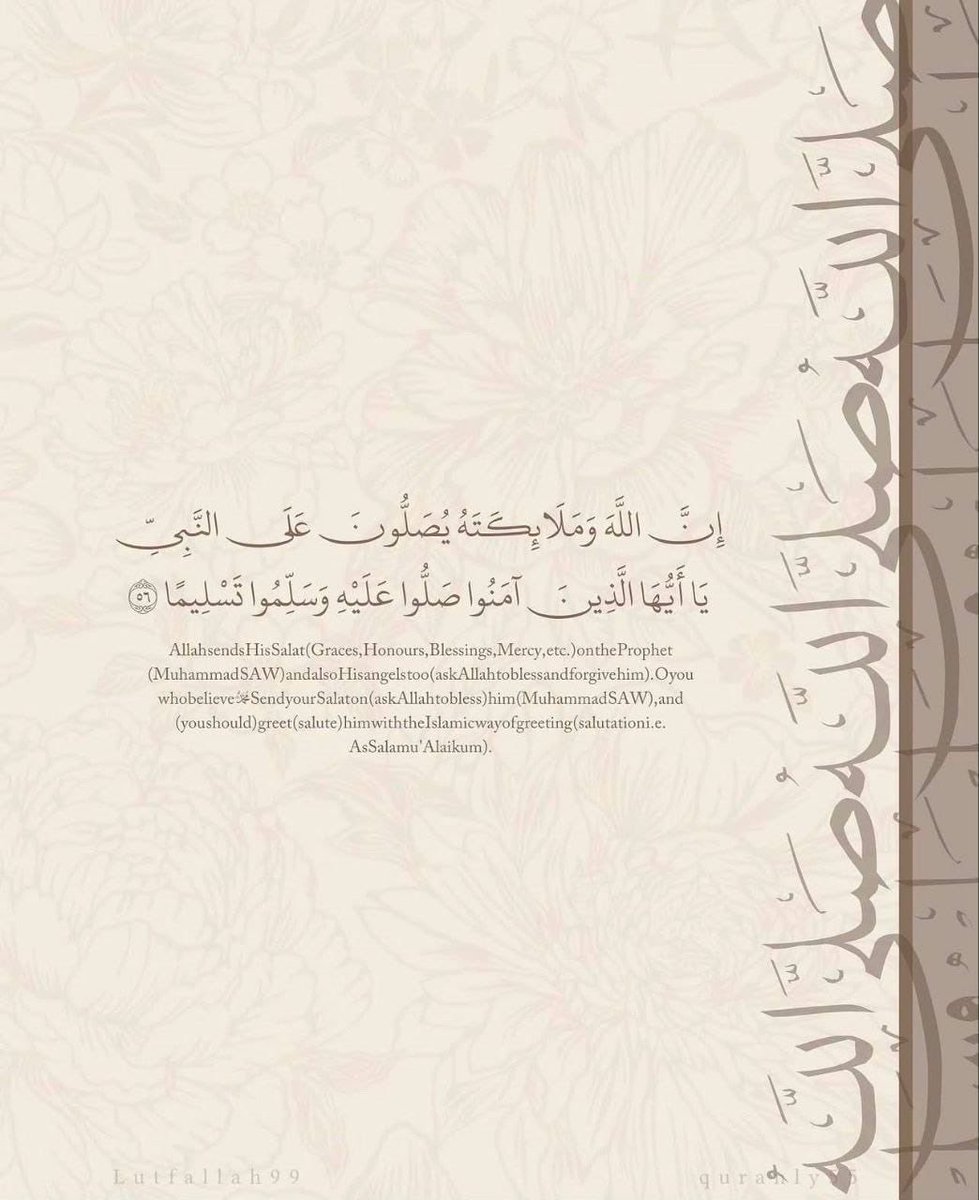 إِنَّ اللَّهَ وَمَلَائِكَتَهُ يُصَلُّونَ عَلَى النَّبِيِّ
يَا أَيُّهَا الَّذِينَ آمَنُوا صَلُّوا عَلَيْهِ وَسَلِّمُوا تَسْلِيمًا ٥٦
AllahsendsHisSalat(Graces,Honours,Blessings,Mercy,etc.)ontheProphet
(MuhammadSAW)andalsoHisangelstoo(askAllahtoblessandforgivehim).Oyou
whobelieveﷺSendyourSalaton(askAllahtobless)him(MuhammadSAW),and
(youshould)greet(salute)himwiththeIslamicwayofgreeting(salutationi.e.
AsSalamu'Alaikum).
صَلَّى اللَّهُ صَلَّى اللَّهُ صَلَّى اللَّهُ
Lutfallah99